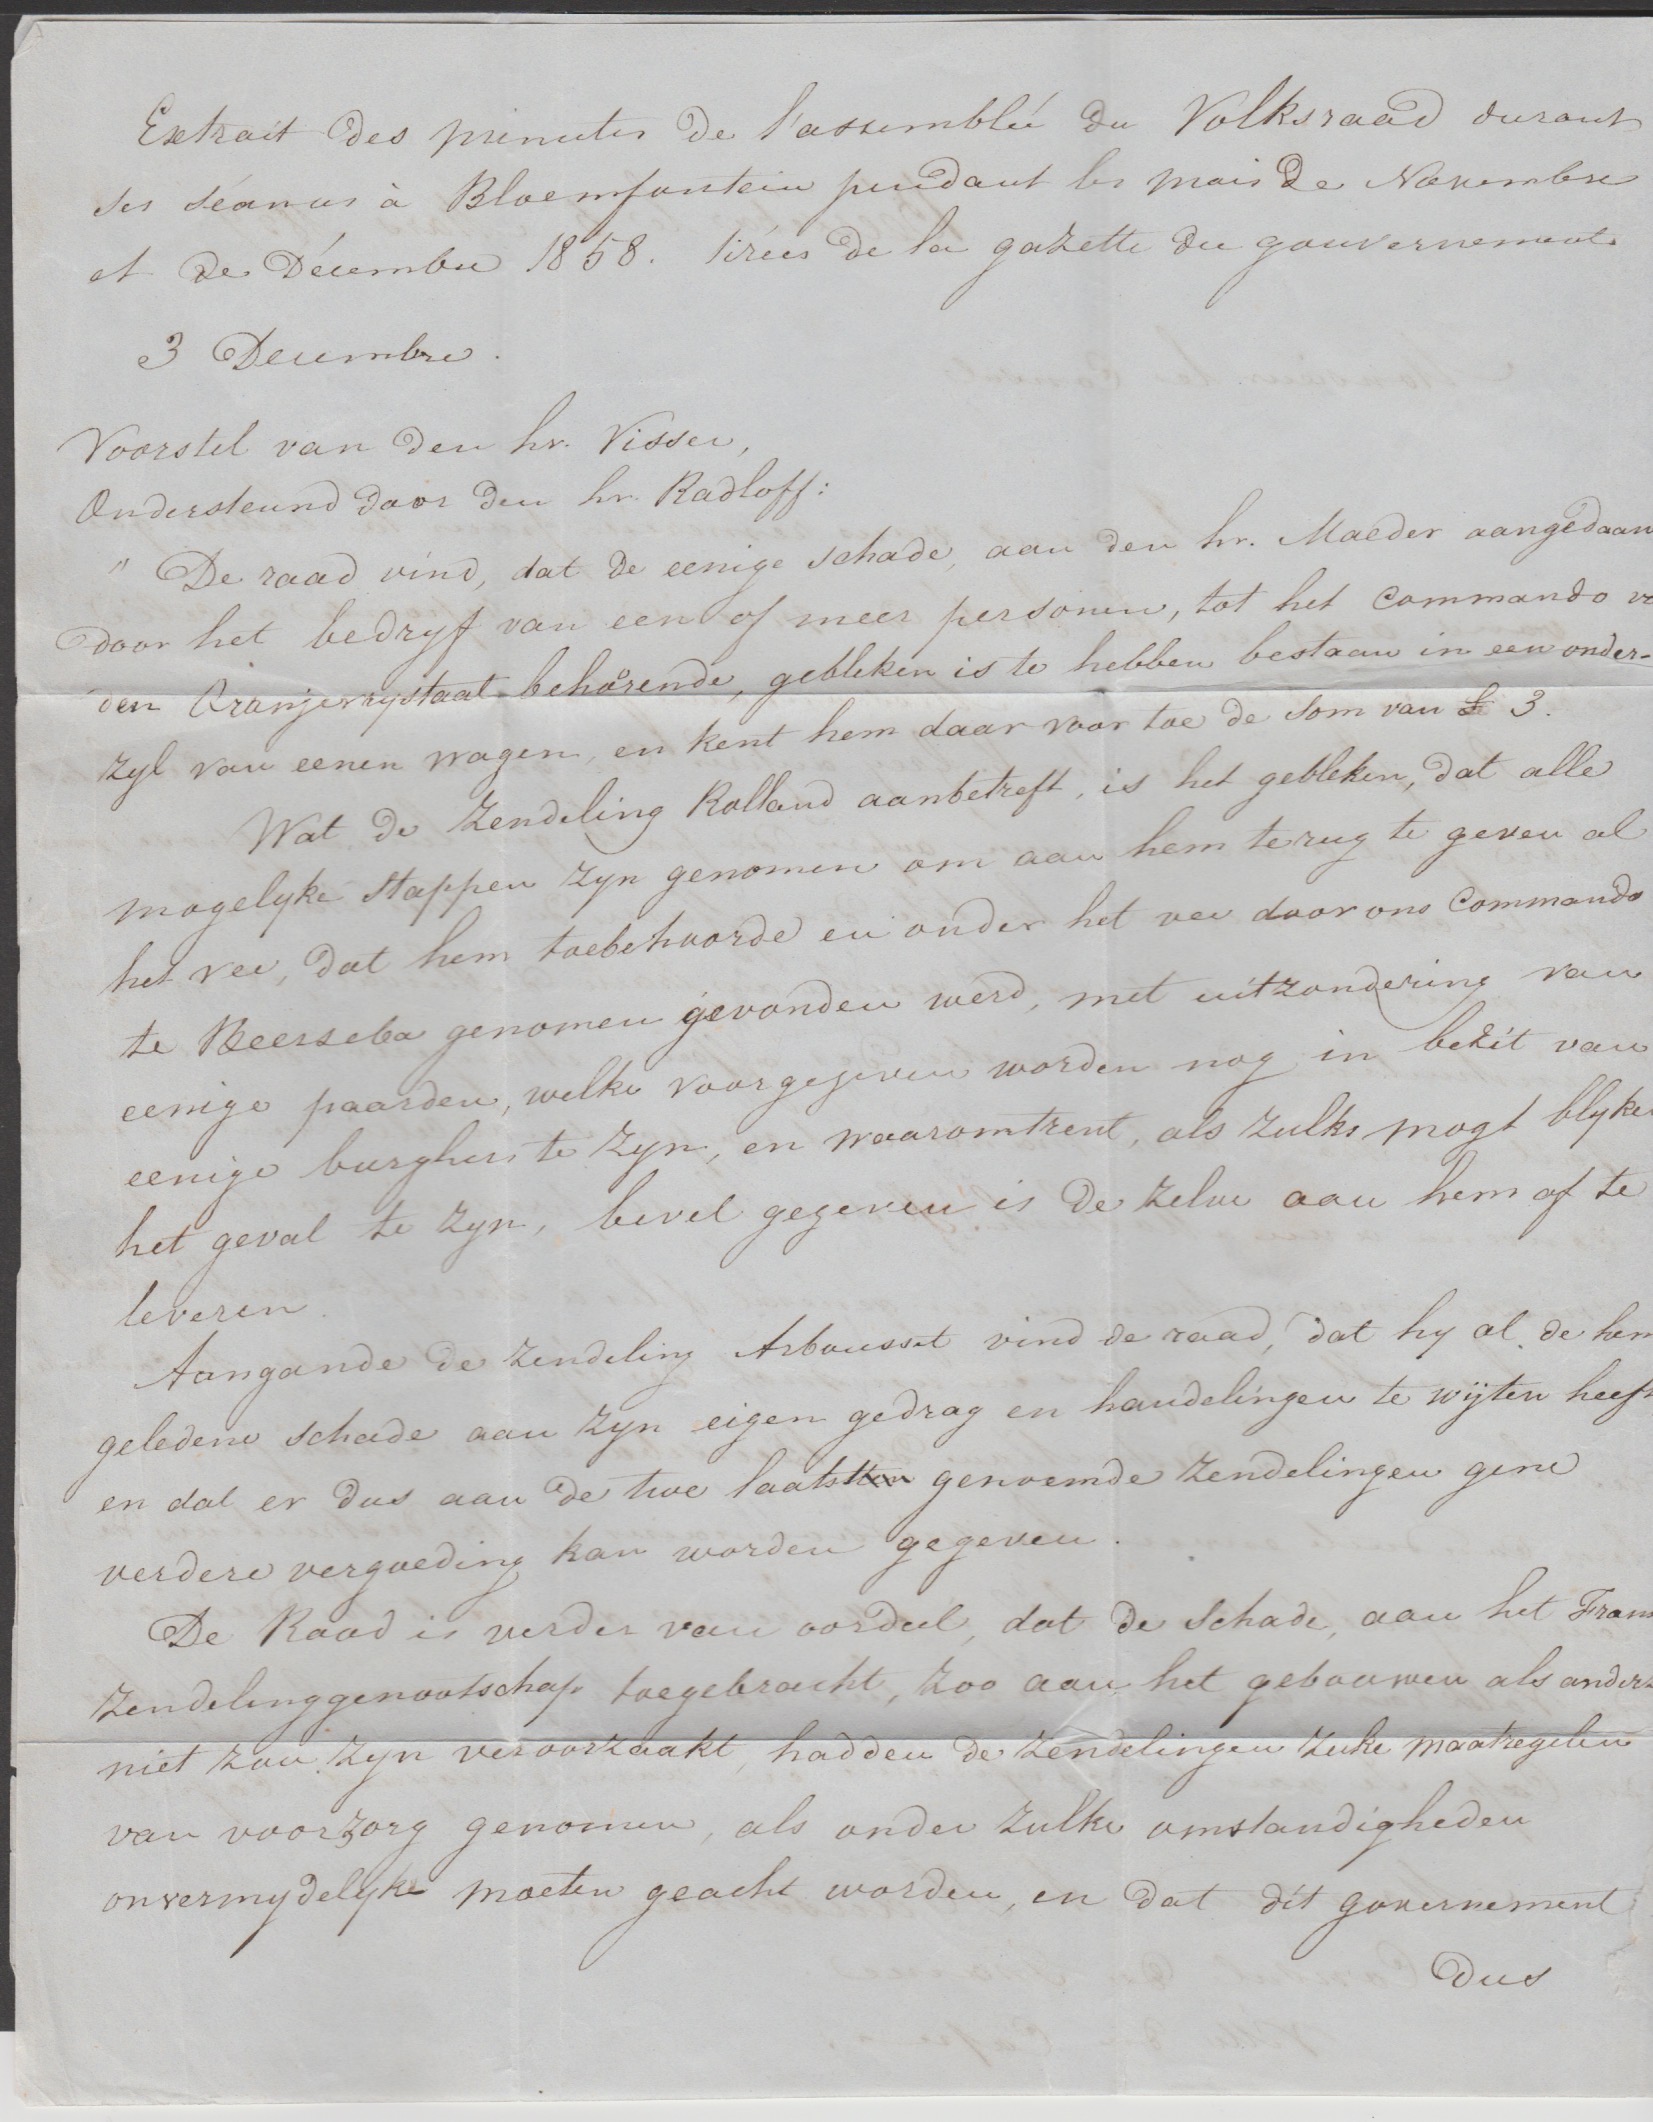 Extrait des minutes de l'assemblée du Volksraad durant
ses séances à Bloemfontein pendant les mois de Novembre
et de Décembre 1858. tirées de la gazette du gouvernement
3 Decembre.
Voorstel van den hr. Visser,
Ondersteund door den hr. Radloff:
" De raad vind, dat de eenige schade, aan den hr. Maeder aangedaan
door het bedryf van een of meer personen, tot het Commando
den Oranjevrystaat behorende, gebleken is te hebben bestaan in een onder-
zyl van eenen wagen, en kent hem daar voor toe de som van £ 3.
Wat de Zendeling Rolland aanbetreft, is het gebleken, dat alle
mogelyke stappen zyn genomen om aan hem terug te geven al
het vee, dat hem toebehoorde en onder het vee door ons Commando
te Beerseba genomen gevonden werd, met uitzondering van
eenige paarden, welke voorgegeven worden nog in bezit van
eenige burghers te zyn, en waaromtrent, als zulks mogt blyken
het geval te zyn, bevel gegeven is de zelve aan hem af te
leveren.
Aangande de zendeling Arbousset vind de raad, dat hy al de hem
geledene schade aan zyn eigen gedrag en handelingen te wijten heeft
en dat er dus aan de twe laatsten genoemde zendelingen gene
verdere vergoeding kan worden gegeven.
De Raad is verder van oordeel, dat de schade, aan het Frans
Zendelinggenootschap toegebracht, zoo aan het gebouwen als anders
niet zou zyn veroorzaakt, hadden de zendelingen zulke maatregelen
van voorzorg genomen, als onder zulke omstandigheden
onvermydelyke moeten geacht worden, en dat dit government
dus